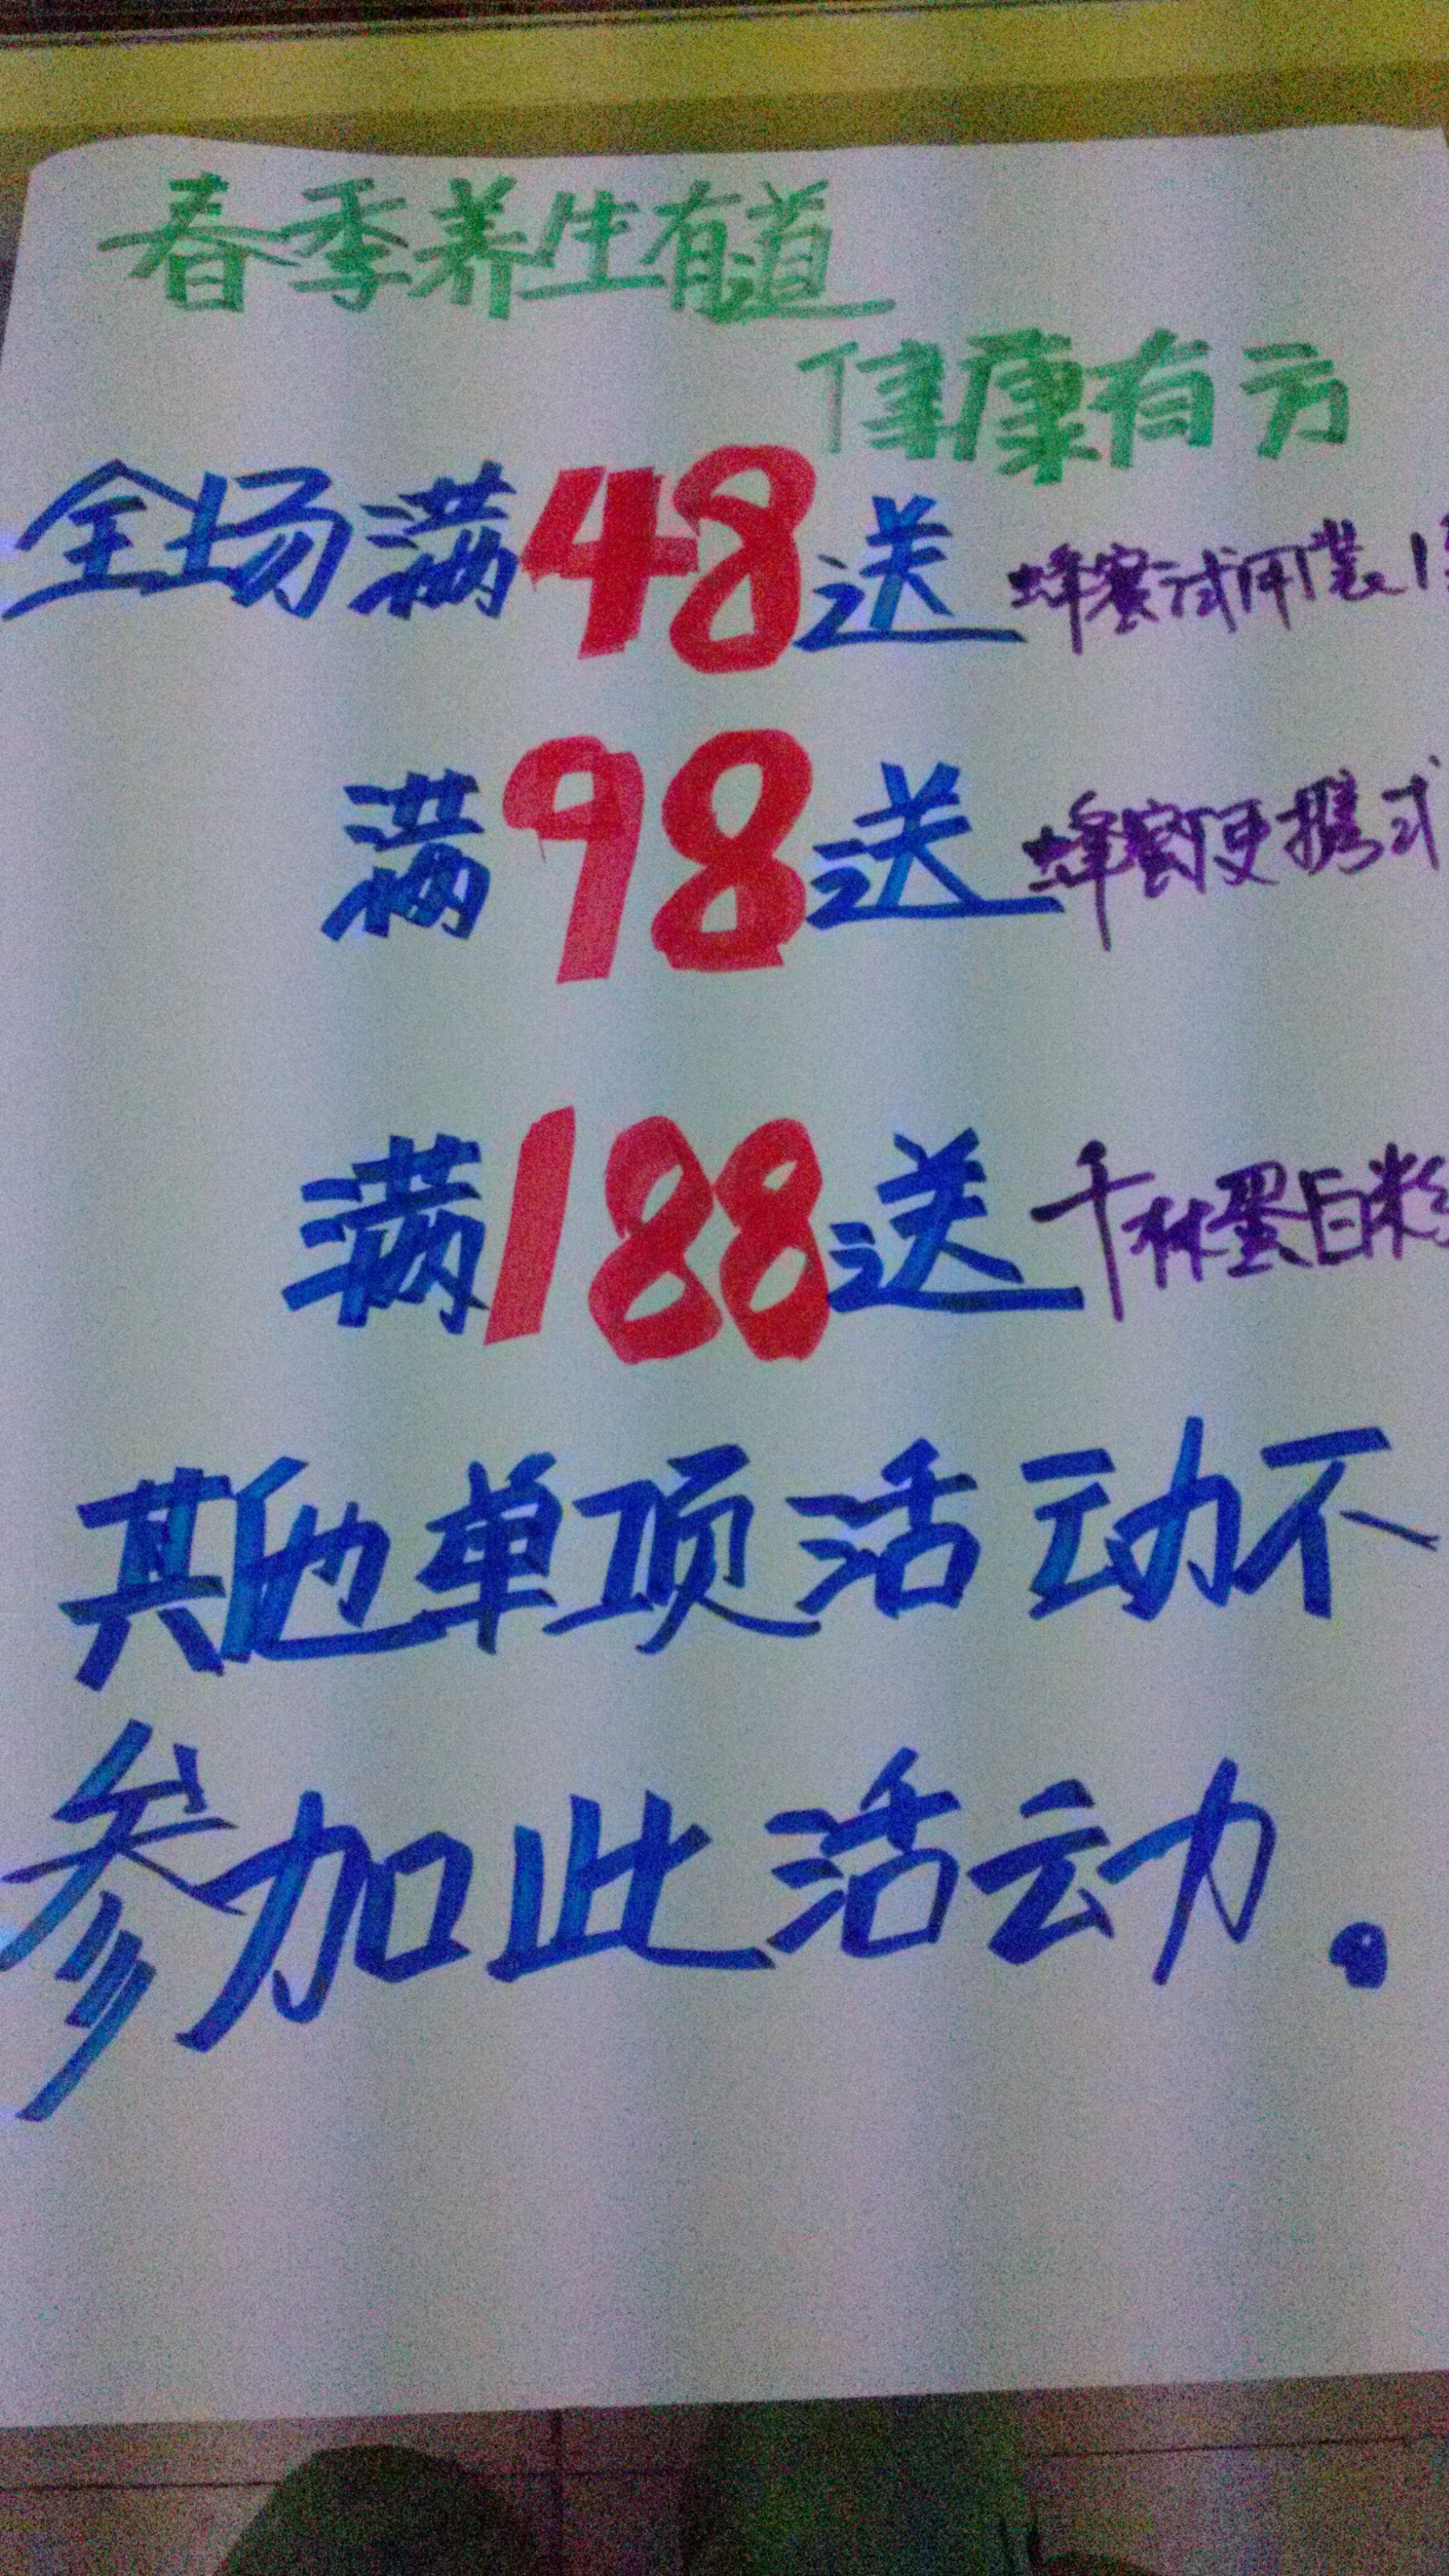 春季养生有道
健康有方
全场满48送蜂蜜试用装1
满98送蜂蜜便携式
满188送千林蛋白粉
其他单项活动不
参加此活动.